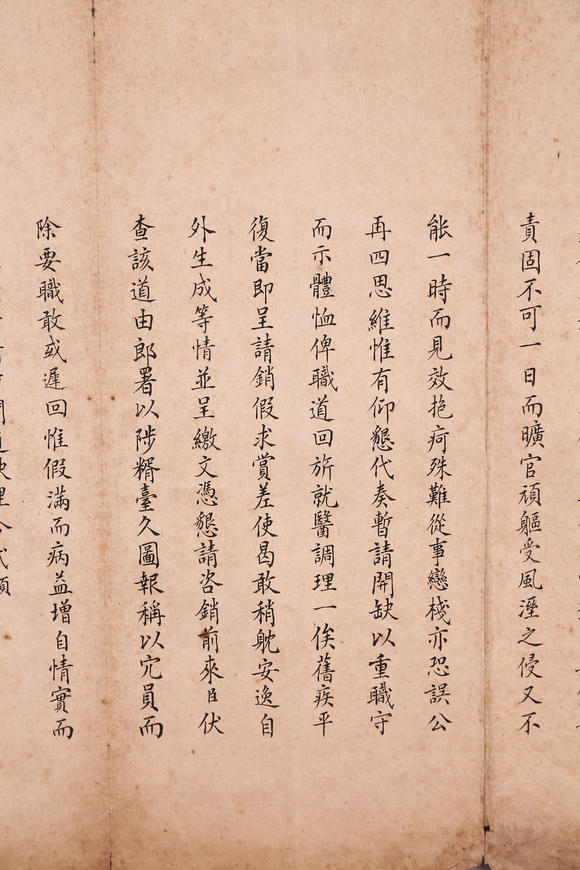 責固不可一日而曠官頑軀受風溼之侵又不
能一時而見效抱疴殊難從事戀棧亦恐誤公
再四思維惟有仰懇代奏暫請開缺以重職守
而示體恤俾職道回旂就醫調理一俟舊疾平
復當即呈請銷假求賞差使曷敢稍躭安逸自
外生成等情並呈繳文憑懇請咨銷前來臣伏
查該道由郎署以陟糈臺久圖報稱以宂員而
除要職敢或遲回惟假滿而病益增自情實而